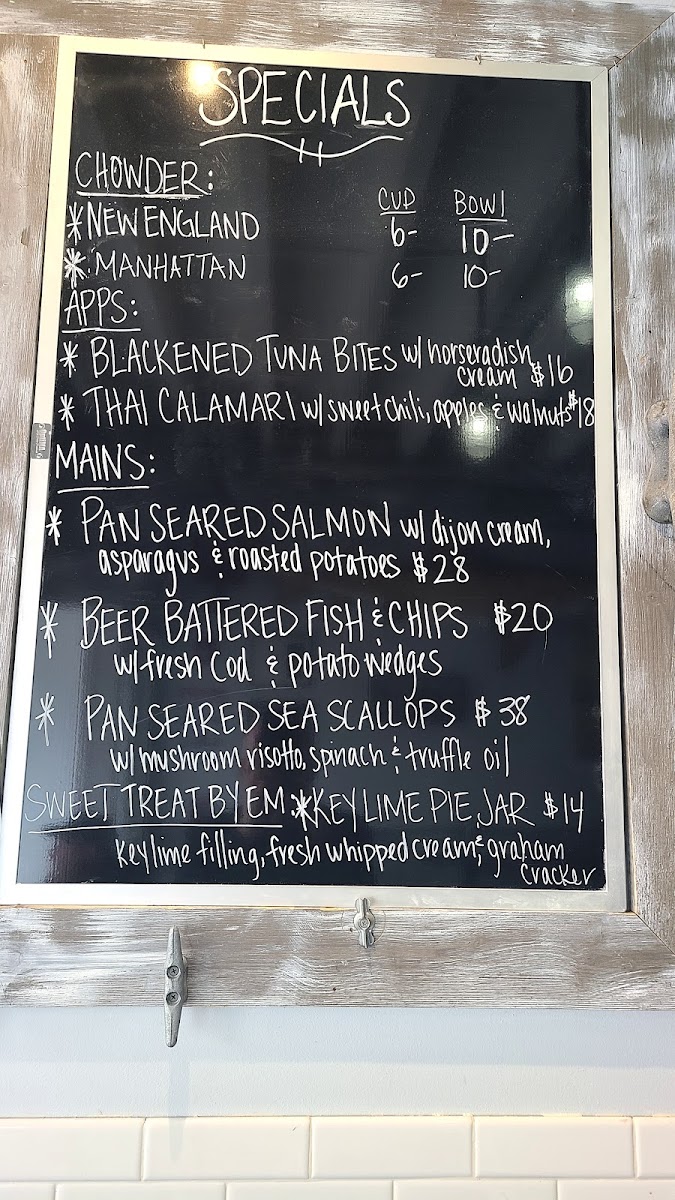 SPECIALS
CHOWDER:
CUP BOWL
*NEW ENGLAND 6- 10-
*MANHATTAN 6- 10-
APPS:
* BLACKENED TUNA BITES w/ horseradish
cream $16
* THAI CALAMARI w/ sweet chili, apples & walnuts $18
MAINS:
* PAN SEARED SALMON w/ dijon cream,
asparagus & roasted potatoes $28
* BEER BATTERED FISH & CHIPS $20
w/ fresh Cod & potato wedges
* PAN SEARED SEA SCALLOPS $38
w/ mushroom risotto, spinach & truffle oil
SWEET TREAT BY EM: *KEY LIME PIE JAR $14
key lime filling, fresh whipped cream, & graham
cracker